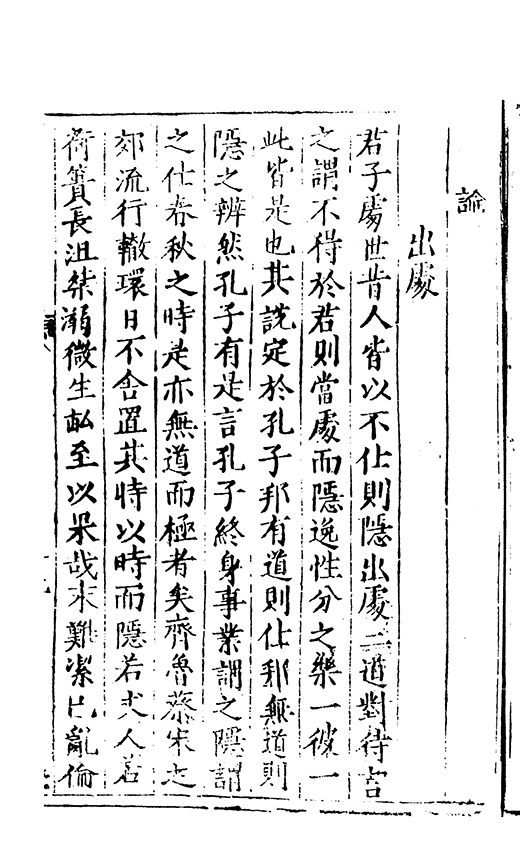 論
出處
君子處世昔人皆以不仕則隱出處二道對待言
之謂不得於君則當處而隱逸性分之樂一彼一
此皆是也其說定於孔子邦有道則仕邦無道則
隱之辨然孔子有是言孔子終身事業謂之隱謂
之仕春秋之時是亦無道而極者矣齊魯蔡宋之
郊流行轍環日不舍置其時以時而隱若丈人若
荷蕢長沮桀溺微生畝至以果哉末難潔己亂倫